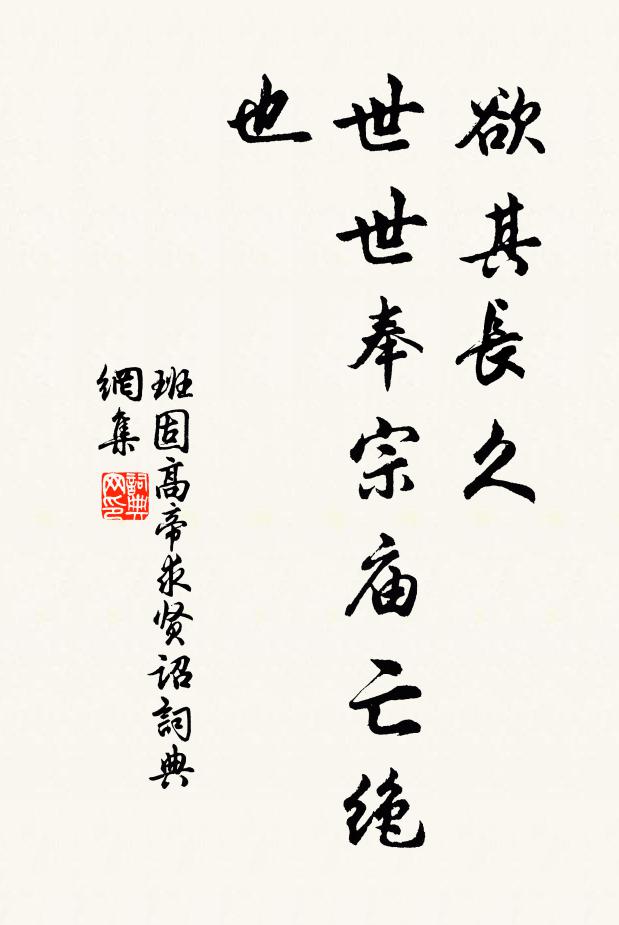 欲其長久
世世奉宗庙亡绝
也
班固高帝求贤诏詞典
網集
詞典
网印